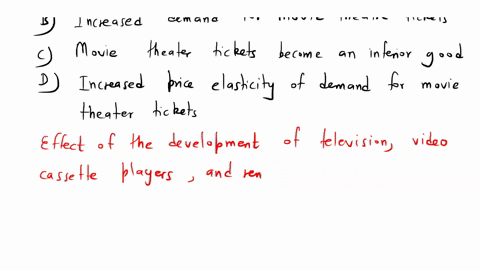 B) Increased demand for movie theatre tickets
C) Movie theater tickets become an inferior good
D) Increased price elasticity of demand for movie
theater tickets
Effect of the development of television, video
cassette players, and ren